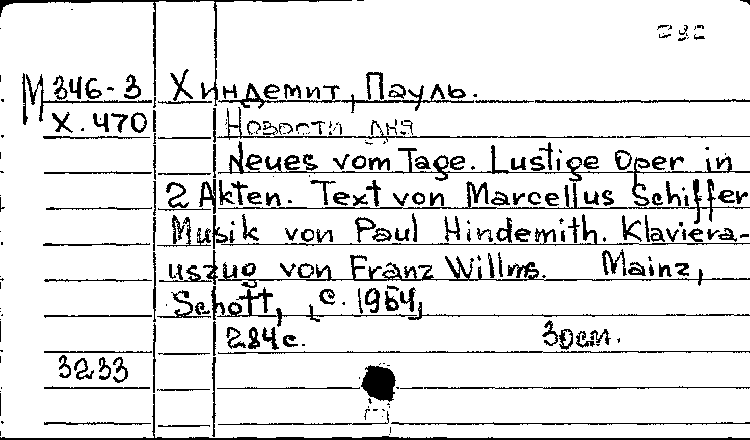 292
М 346-3 Хиндемит, Пауль.
Х. 470 Новости дня
Neues vom Tage. Lustige Oper in
2 Akten. Text von Marcellus Schiffer
Musik von Paul Hindemith. Klaviera-
uszug von Franz Willms. Mainz,
Schott, [c. 1954]
284 с. 30 см.
3233